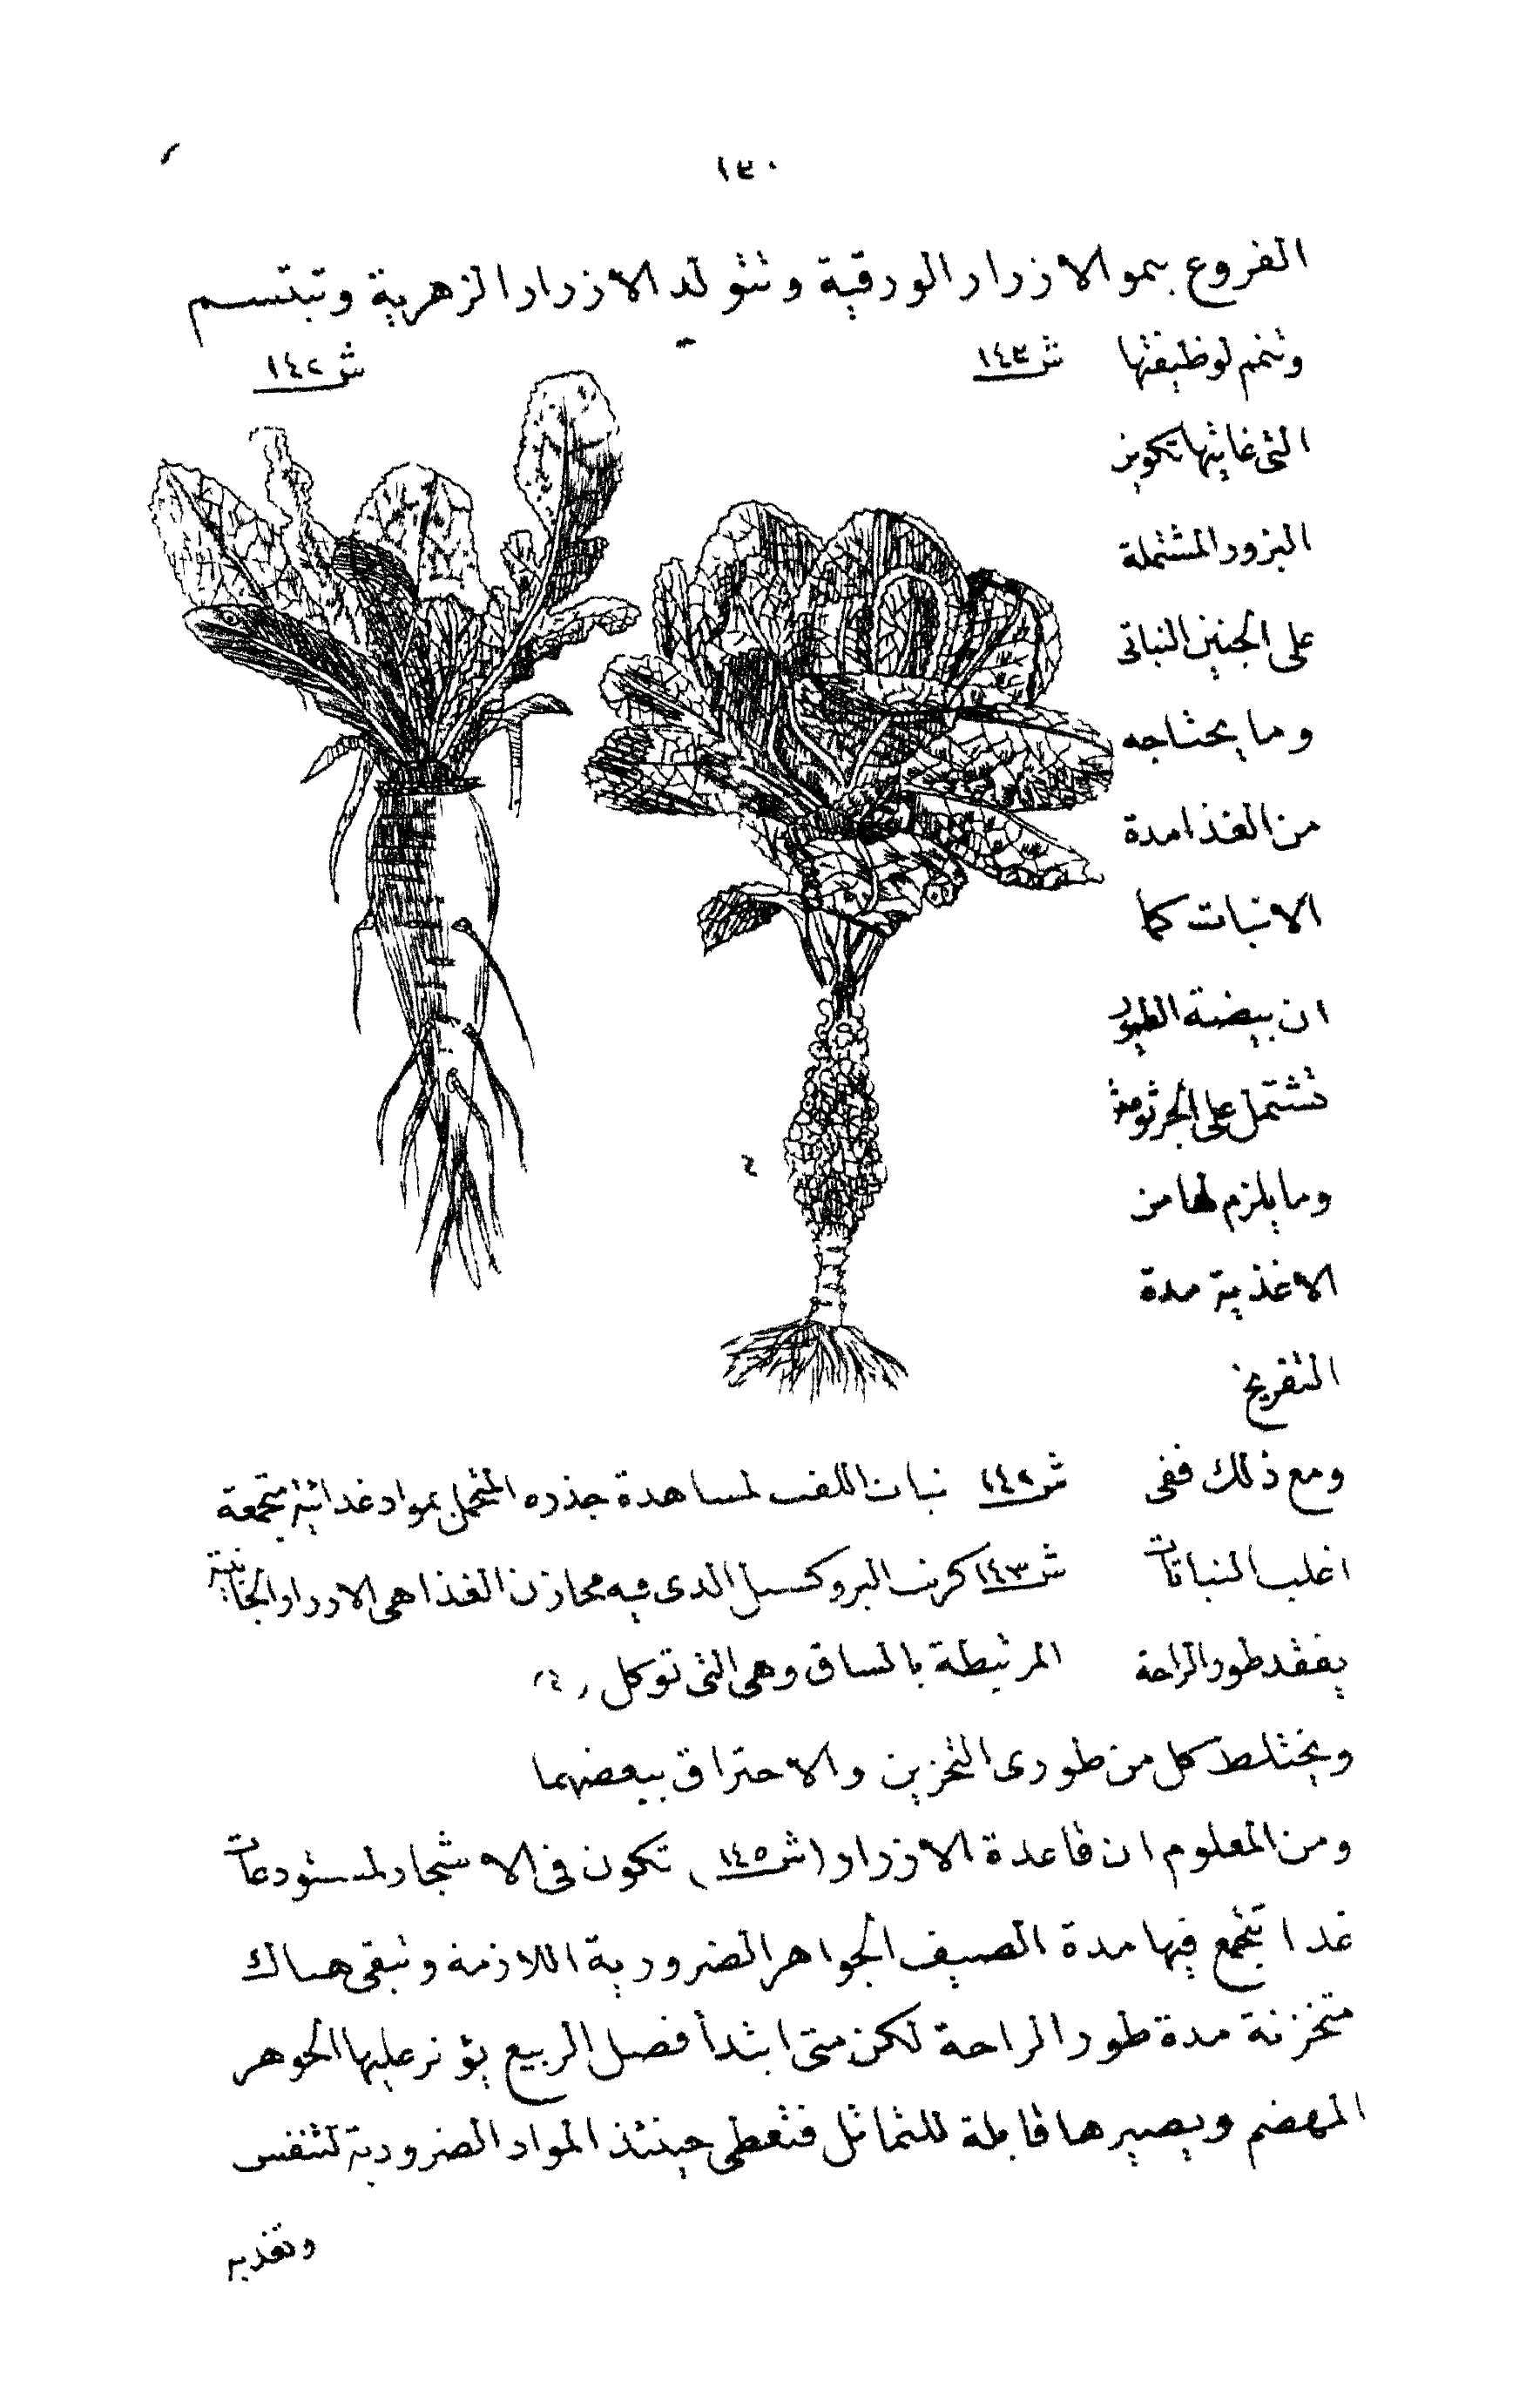 ١٣٠
الفروع بنمو الازرار الورقية وتتولد الازرار الزهرية وتبتسم
وتتمم لوظيفتها
ش ١٤٣
ش ١٤٢
التى غايتها تكوين
البزور المشتملة
على الجنين النباتى
وما يحتاجه
من الغذا مدة
الانبات كما
ان بيضة الطيور
تشتمل على الجرثومة
وما يلزم لها من
الاغذية مدة
التفريخ
٤
ومع ذلك ففى
اغلب النباتات
يفقد طور الراحة
ش ١٤٢ نبات اللفت لمساهدة جذره المتحمل بمواد غدائية متجمعة
ش ١٤٣ كرنب البروكسيل الدى فيه مخازن الغذا هى الازرار الجانبية
المرتبطة بالساق وهى التى توكل (٤)
ويختلط كل من طورى التخزين والاحتراق ببعضهما
ومن المعلوم ان قاعدة الازرار (ش ١٤٥) تكون فى الاشجار لمستودعات
غدا تتجمع فيها مدة الصيف الجواهر الضرورية اللازمة وتبقى هناك
متخزنة مدة طور الراحة لكن متى ابتدأ فصل الربيع يؤثر عليها الجوهر
المهضم ويصيرها قابلة للتماثل فتعطى حينئذ المواد الضرورية لتنفس
وتغذية